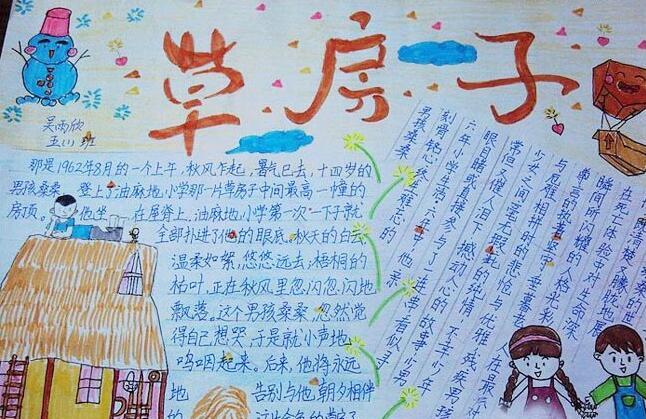 草房子
吴雨欣
五(1)班
那是1962年8月的一个上午,秋风乍起,暑气已去,十四岁的
男孩桑桑,登上了油麻地小学那一片草房子中间最高一幢的
房顶。他坐在屋脊上,油麻地小学第一次一下子就
全部扑进了他的眼底。秋天的白云
温柔如絮,悠悠远去;梧桐的
枯叶,正在秋风里忽闪忽闪地
飘落。这个男孩桑桑,忽然觉
得自己想哭,于是就小声地
呜咽起来。后来,他将永远
地告别与他朝夕相伴
的
男孩桑桑
刻骨铭心,终生难忘的
六年小学生活。六年中,他亲
眼目睹或直接参与了一连串看似寻
常但又催人泪下、撼动人心的故事:少男
少女之间毫无瑕疵的纯情,不幸少年
与厄运相拼时的悲怆与优雅,残疾男孩
尊严的执着坚守
瞬间所闪耀的人格光
在死亡体验中对生命深